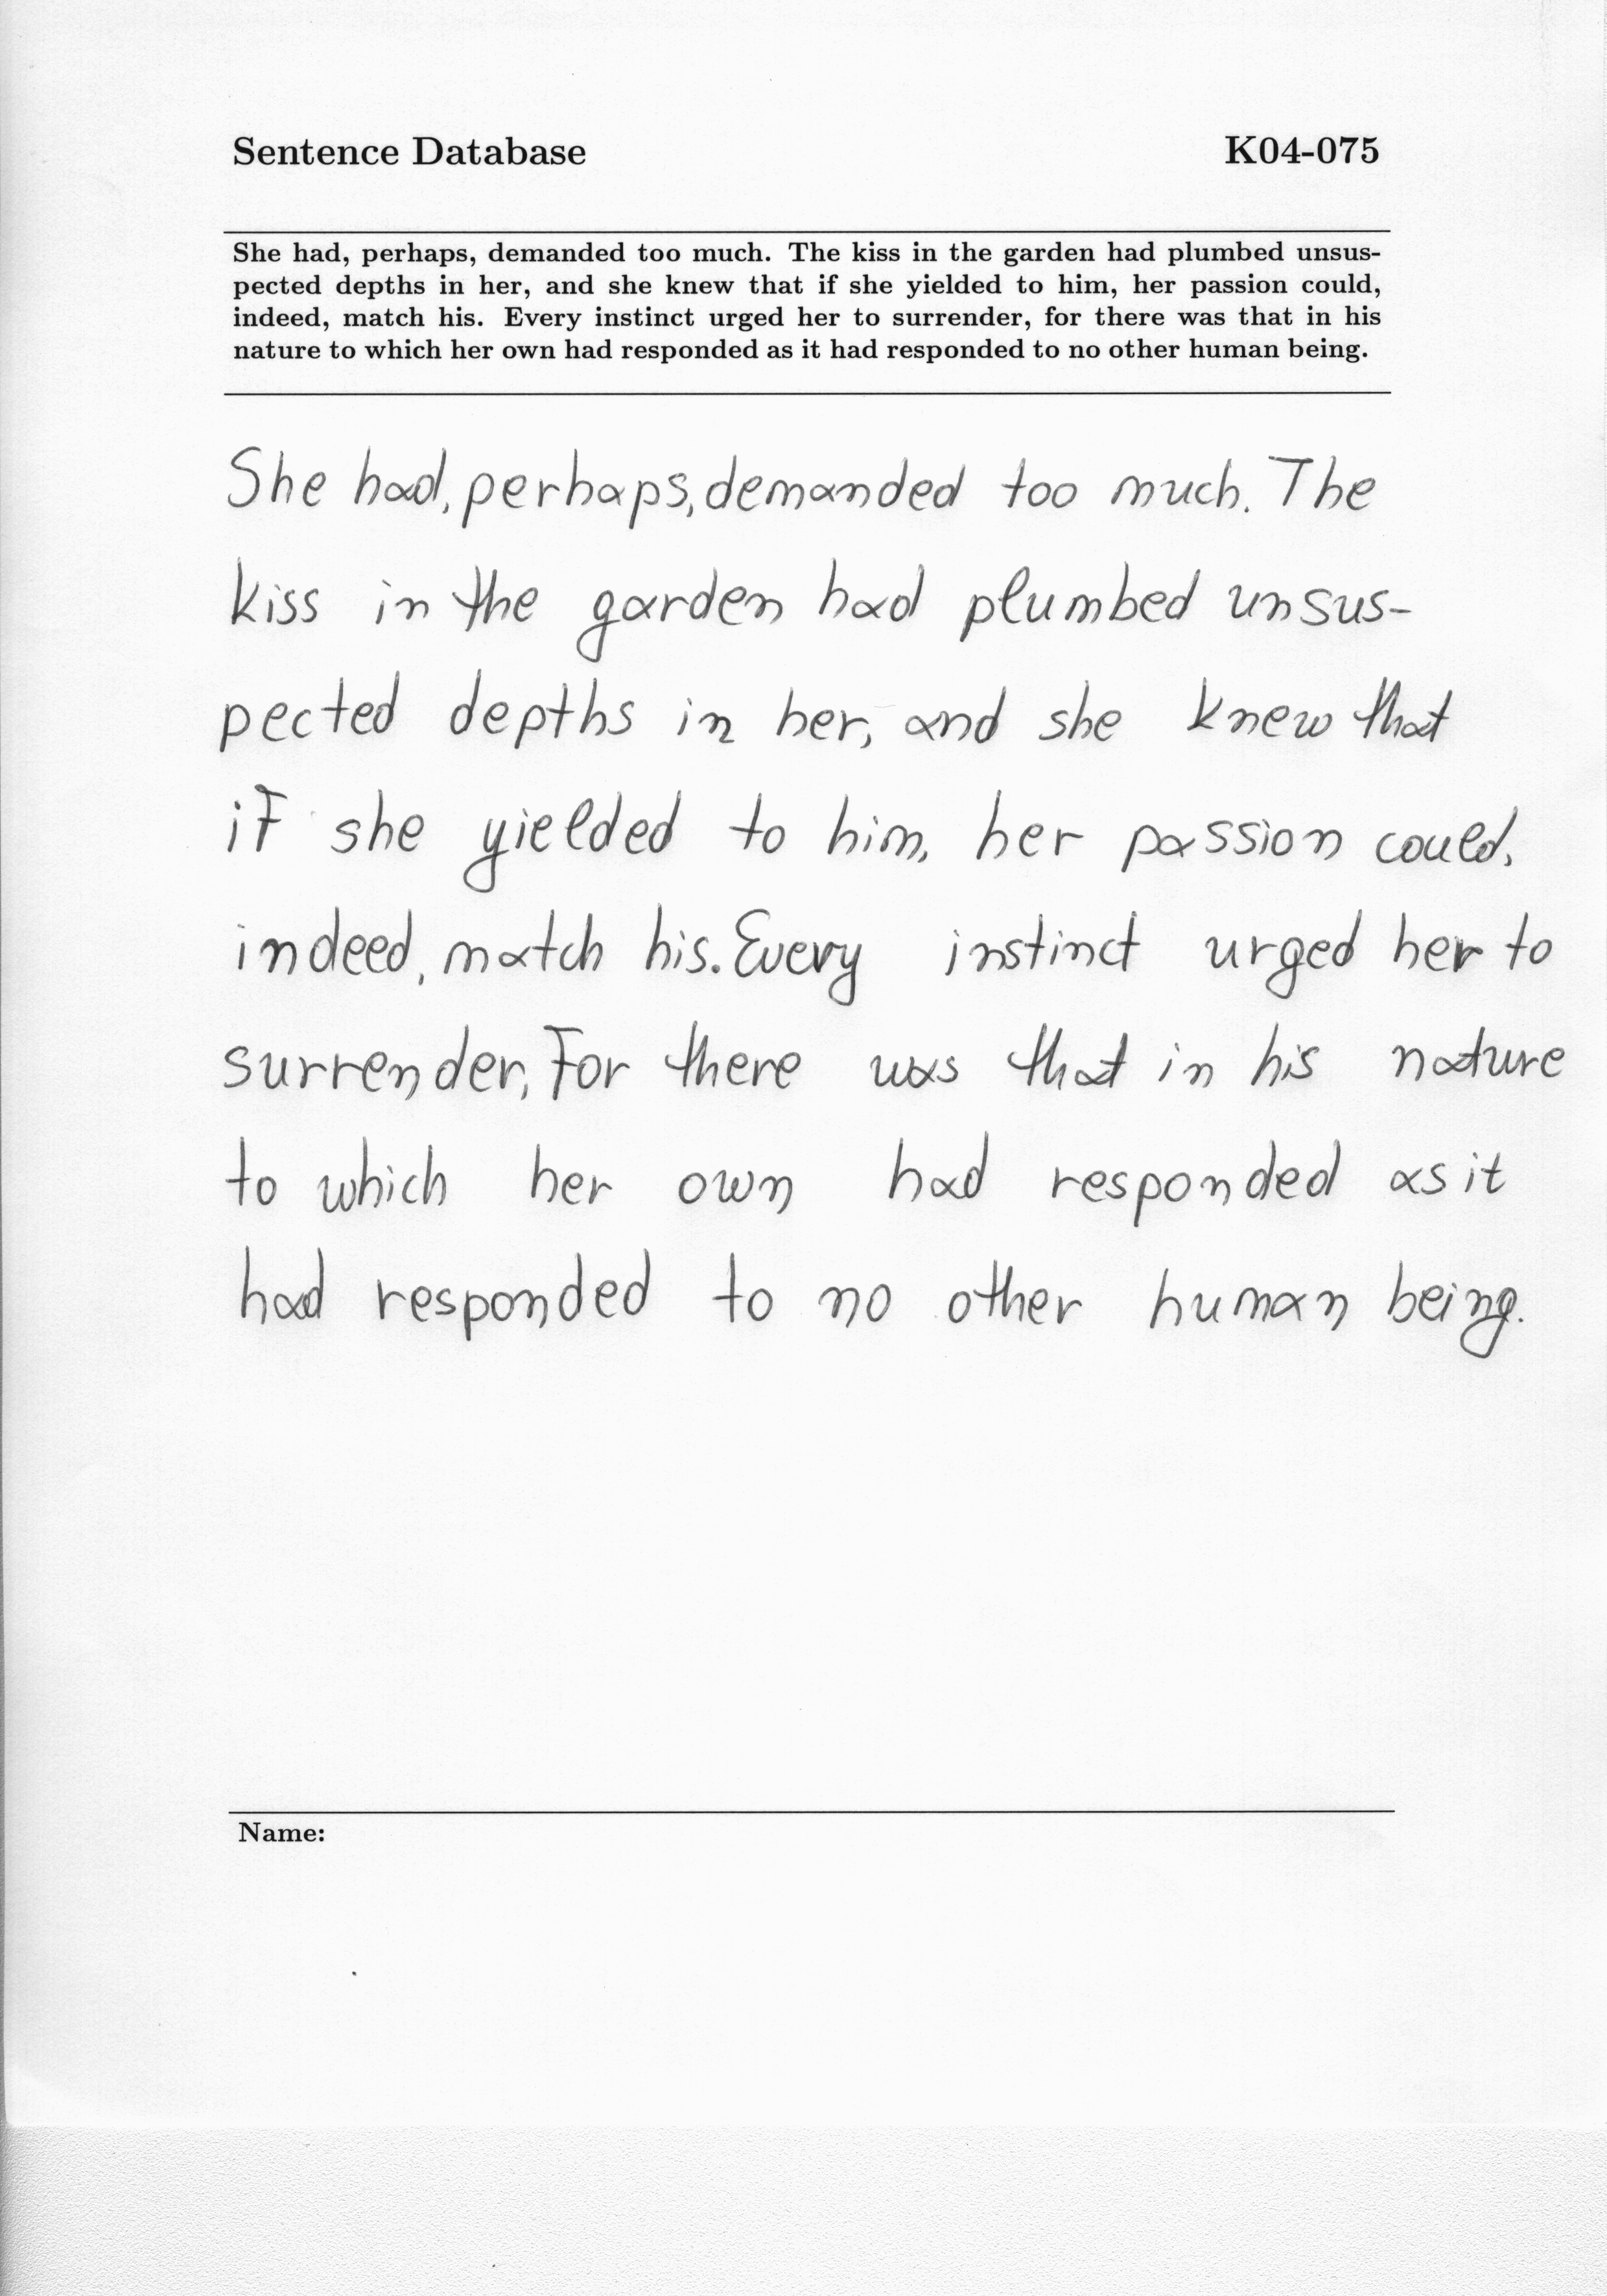 Sentence Database K04-075
She had, perhaps, demanded too much. The kiss in the garden had plumbed unsus-
pected depths in her, and she knew that if she yielded to him, her passion could,
indeed, match his. Every instinct urged her to surrender, for there was that in his
nature to which her own had responded as it had responded to no other human being.
She had, perhaps, demanded too much. The
kiss in the garden had plumbed unsus-
pected depths in her, and she knew that
if she yielded to him, her passion could,
indeed, match his. Every instinct urged her to
surrender, for there was that in his nature
to which her own had responded as it
had responded to no other human being.
Name: